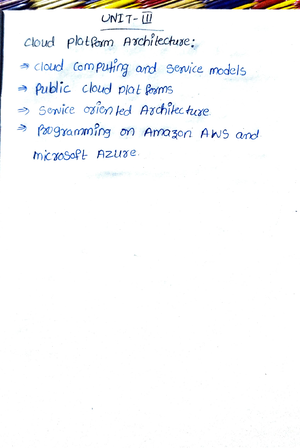 UNIT-III
Cloud Platform Architecture:
⇒ Cloud Computing and Service models
⇒ Public Cloud Platforms
⇒ Service oriented Architecture
⇒ Programming on Amazon AWS and
Microsoft Azure.